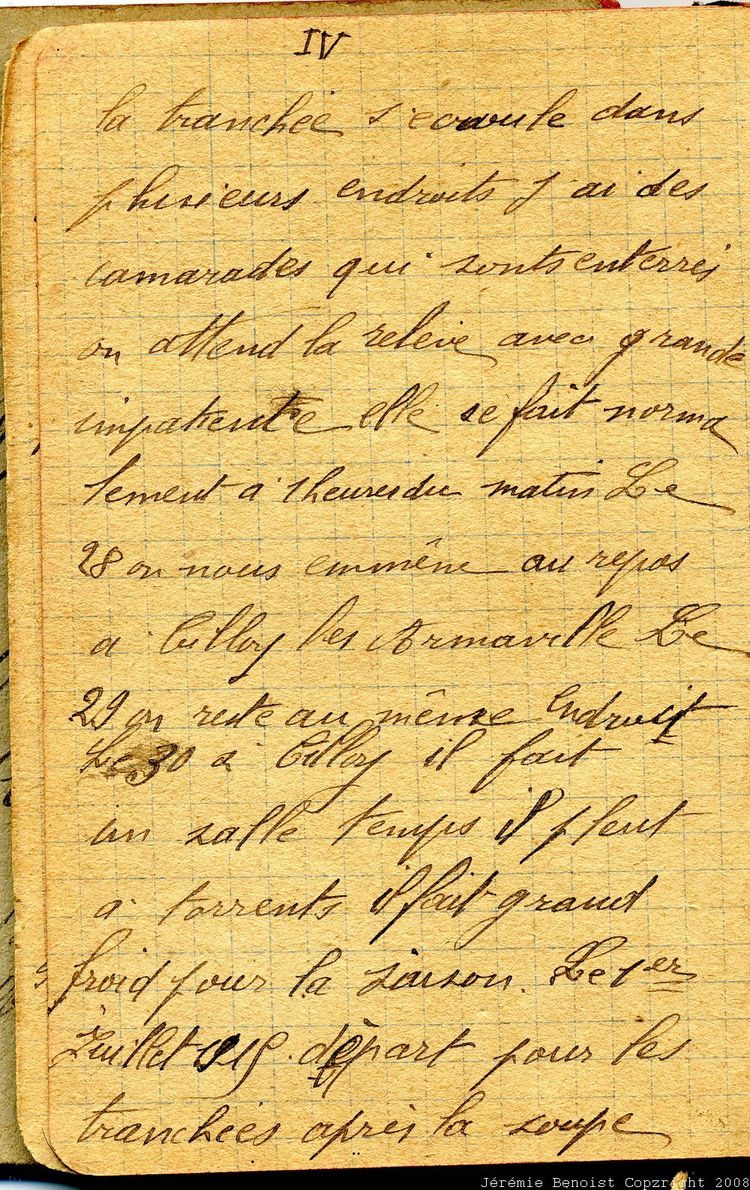 IV
la tranchée s'ecroule dans
plusieurs endroits j'ai des
camarades qui sonts enterrés
on attend la releve avec grande
impatiente elle se fait norma
lement a 1 heures du matin Le
28 on nous emmêne au repos
a Cilloy les Armaville Le
29 on reste au même Endroit
Le 30 a Cilloy il fait
un salle temps il pleut
a torrents il fait grand
froid pour la saison. Le 1er
Juillet 1915 départ pour les
tranchées après la soupe
Jérémie Benoist Copzright 2008